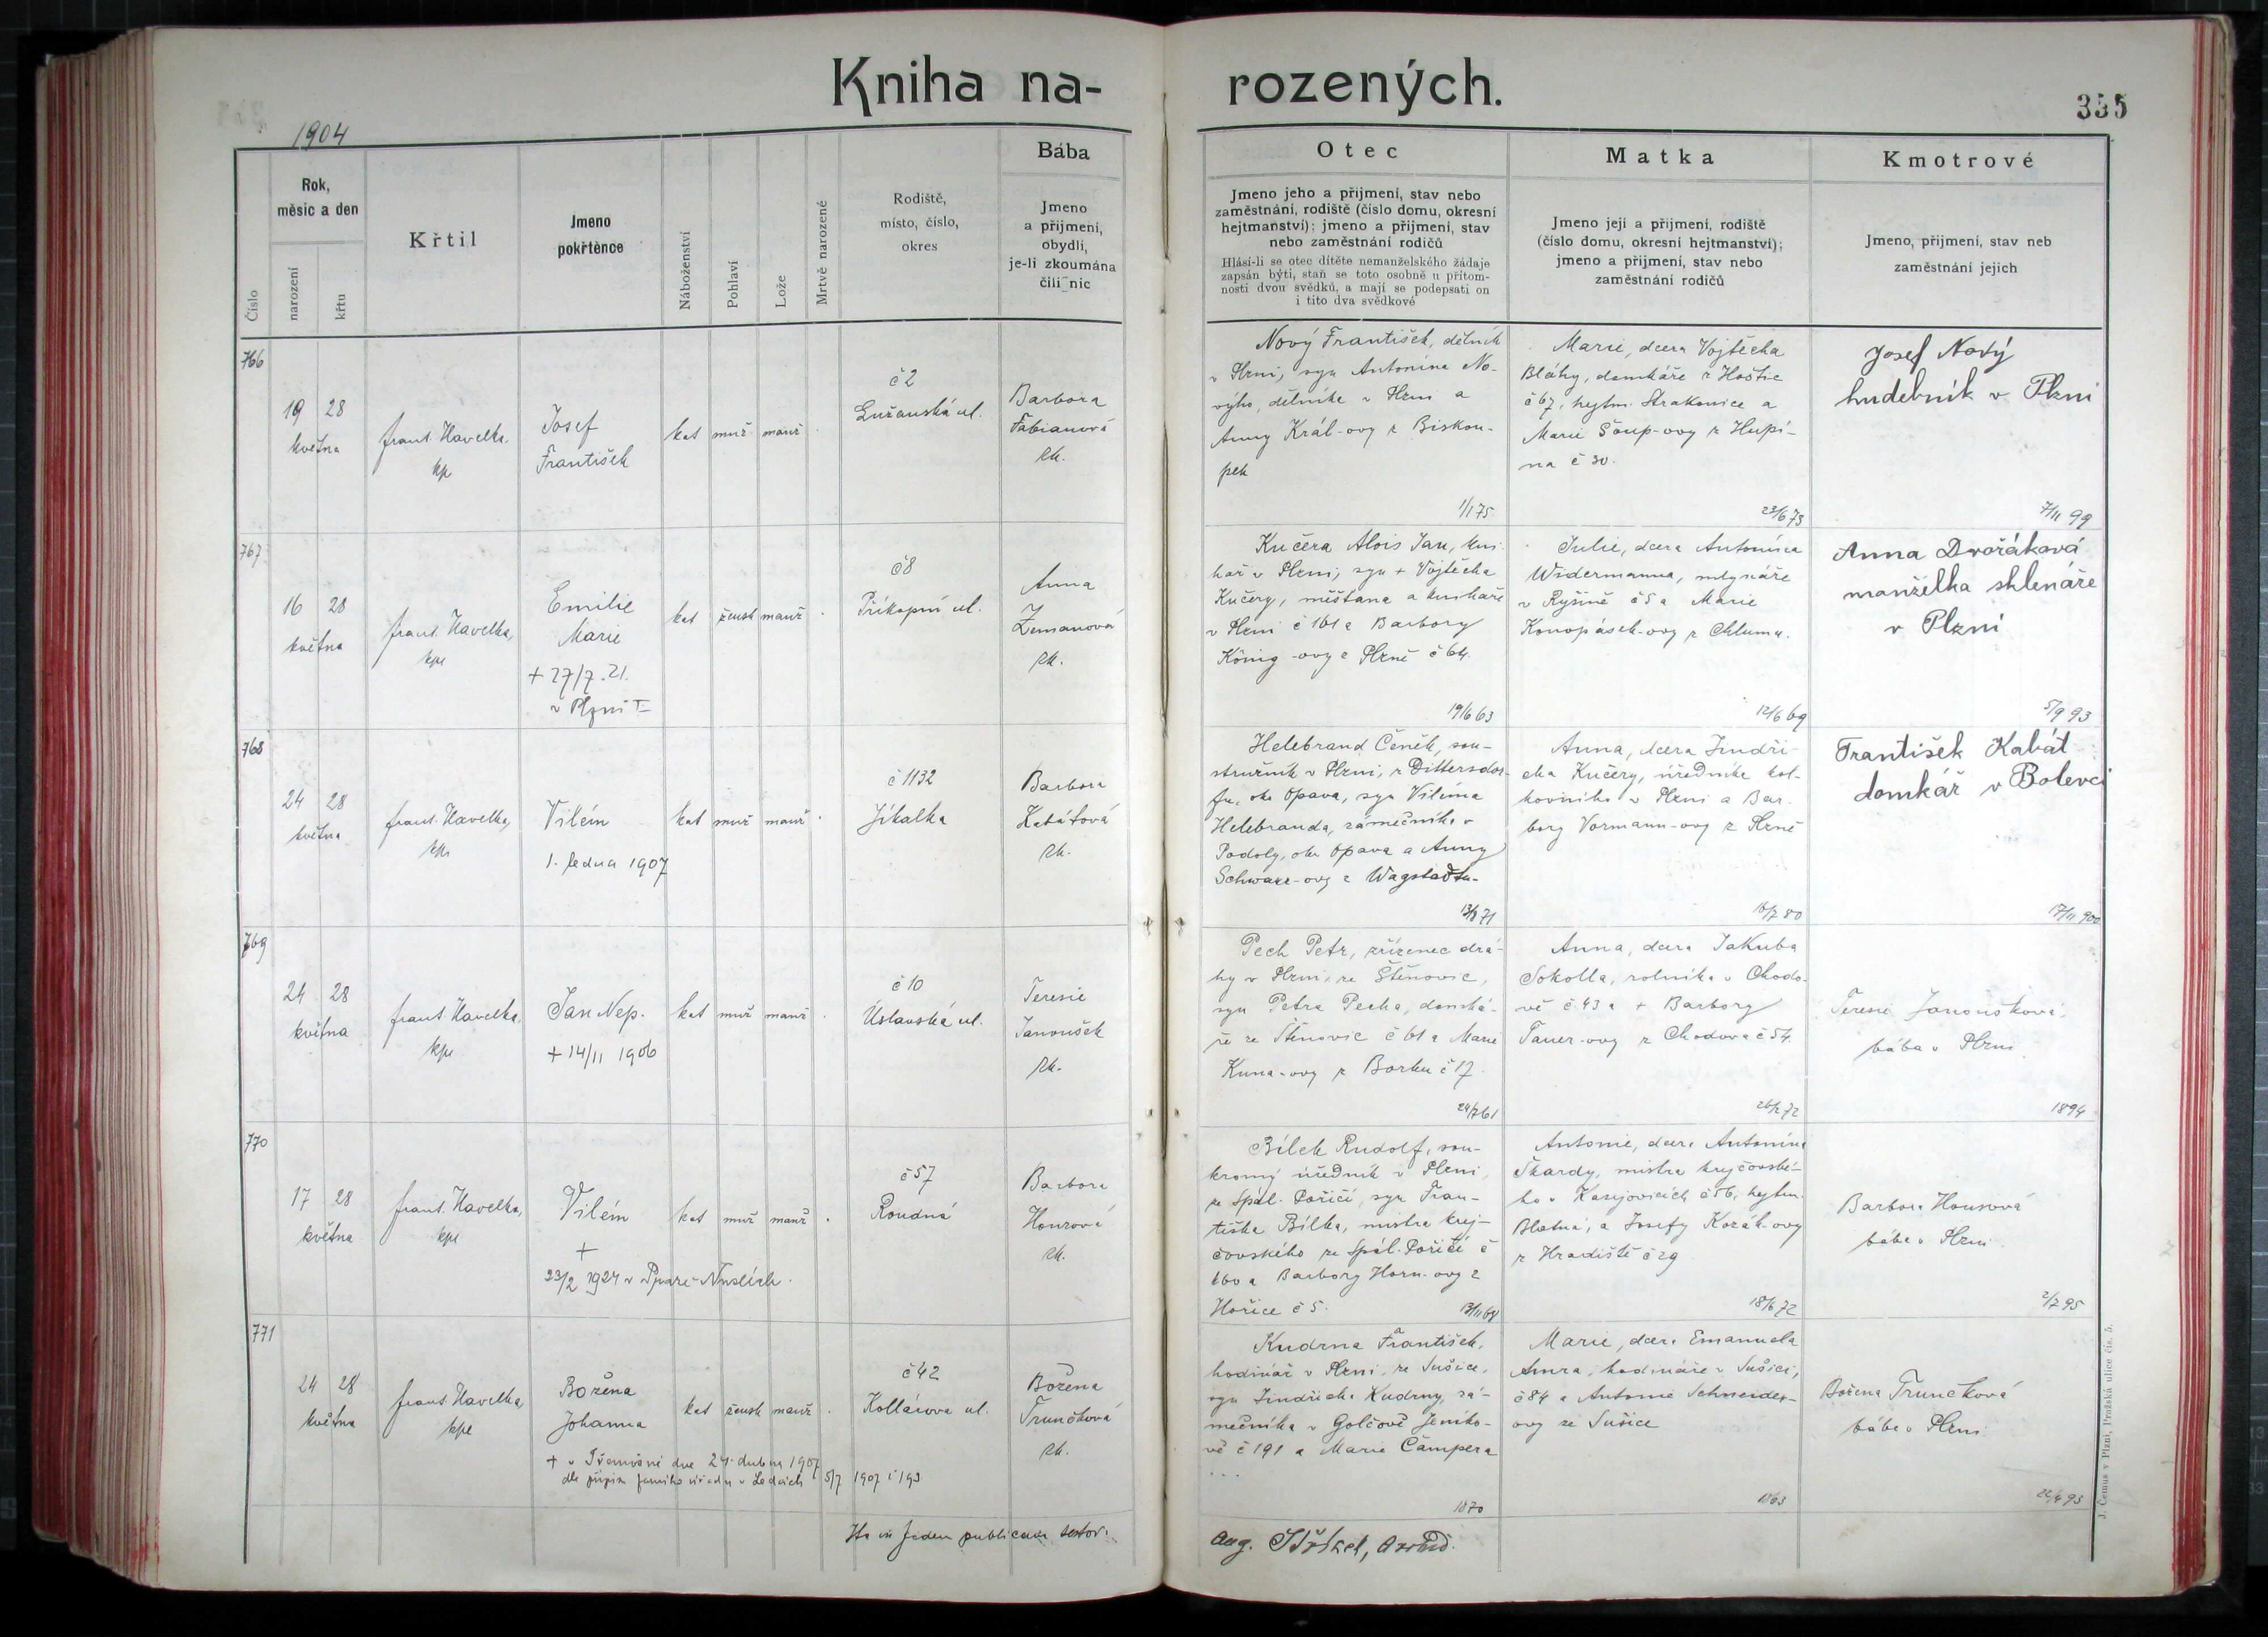 Kniha na-
rozených.
335
1904
Číslo
Rok,
měsic a den
narození
křtu
Křtil
Jmeno
pokřtěnce
Náboženství
Pohlaví
Lože
Mrtvě narozené
Rodiště,
místo, číslo,
okres
Bába
Jmeno
a přijmení,
obydlí,
je-li zkoumána
čili nic
Otec
Jmeno jeho a přijmení, stav nebo
zaměstnání, rodiště (číslo domu, okresní
hejtmanství); jmeno a přijmení, stav
nebo zaměstnání rodičů
Hlásí-li se otec dítěte nemanželského žádaje
zapsán býti, staň se toto osobně u přítom-
nosti dvou svědků, a mají se podepsati on
i tito dva svědkové
Matka
Jmeno její a přijmení, rodiště
(číslo domu, okresní hejtmanství);
jmeno a přijmení, stav nebo
zaměstnání rodičů
Kmotrové
Jmeno, přijmení, stav neb
zaměstnání jejich
766
19 28
května
frant. Havelka,
kpl
Josef
František
kat muž manž
č 2
Lužanská ul.
Barbora
Fabianová
zk.
Nový František, dělník
v Plzni, syn Antonína No-
výho, dělníka v Plzni a
Anny Král-ovy z Biskou-
pek
1/1 75
Marie, dcera Vojtěcha
Bláhy, domkáře z Hoštic
č 67, hejtm. Strakonice a
Marie Šoup-ovy z
č 30.
23/6 73
Josef Nový
hudebník v Plzni
7/11 99
767
16 28
května
frant. Havelka,
kpl
Emilie
Marie
+ 27/7. 21.
v Plzni I
kat žensk manž
č 8
Příkopní ul.
Anna
Zemanová
zk.
Kučera Alois Jan, kni-
hař v Plzni, syn + Vojtěcha
Kučery, měšťana a knihaře
v Plzni č 161 a Barbory
König-ovy z Plzně č 64.
19/6 63
Julie, dcera Antonína
Widermanna, mlynáře
v Ryšíně č 5 a Marie
Konopásek-ovy z Chlumu.
12/6 69
Anna Dvořáková
manželka sklenáře
v Plzni
5/9 93
768
24 28
května
frant. Havelka,
kpl
Vilém
1. ledna 1907
kat muž manž
č 1132
Jikalka
Barbora
Kabátová
zk.
Helebrand Čeněk, sou-
stružník v Plzni, z Dittersdor-
fu, okr Opava, syn Viléma
Helebranda, zámečníka v
Podoly, okr Opava a Anny
Schwarz-ovy z Wagstadtu.
13/8 71
Anna, dcera Jindři-
cha Kučery, úředníka kot-
kovního v Plzni a Bar-
bory Vormann-ovy z Plzně
18/7 80
František Kabát
domkář v Bolevci
17/11 900
769
24 28
května
frant Havelka,
kpl
Jan Nep.
+ 14/11 1906
kat muž manž
č 10
Úslavská ul.
Teresie
Janoušek
zk.
Pech Petr, zřízenec drá-
hy v Plzni, ze Štěnovic,
syn Petra Pecha, domká-
ře ze Štěnovic č 61 a Marie
Kuna-ovy z Borku č 17.
24/7 61
Anna, dcera Jakuba
Sokolla, rolníka v Chodo-
vě č 43 a + Barbory
Tauer-ovy z Chodova č 54.
26/2 72
Teresie Janoušková,
bába v Plzni
1894
770
17 28
května
frant. Havelka,
kpl
Vilém
+
23/2 1924 v Praze-Nuslích.
kat muž manž
č 57
Roudná
Barbora
Honzová
zk.
Bílek Rudolf, sou-
kromý úředník v Plzni,
ze Spál. Poříčí, syn Fran-
tiška Bílka, mistra krej-
čovského ze Spál. Poříčí č
160 a Barbory Horn-ovy z
Hořice č 5.
13/11 68
Antonie, dcera Antonína
Škardy, mistra krejčovské-
ho v Kasejovicích č 56, hejtm.
Blatná, a Josefy Kozák-ovy
z Hradiště č 29
18/6 72
Barbora Housová
bába v Plzni
2/7 95
771
24 28
května
frant. Havelka,
kpl
Božena
Johanna
+ v Třemošné dne 24. dubna 1907
dle přípisu farního úřadu v Ledcích 5/7 1907 č 193
kat žensk manž
č 42
Kollárova ul.
Božena
Trunčková
zk.
Kudrna František,
hodinář v Plzni, ze Sušice,
syn Jindřicha Kudrny, zá-
mečníka v Golčově Jeníko-
vě č 191 a Marie Čampera
...
1870
Marie, dcera Emanuela
hodináře v Sušici,
č 84 a Antonie Schneider-
ovy ze Sušice
1863
Božena Trunčková
bába v Plzni
22/4 95
Ita in fidem publicam testor:
Aug.
J. Černus v Plzni, Pražská ulice čís. 5.